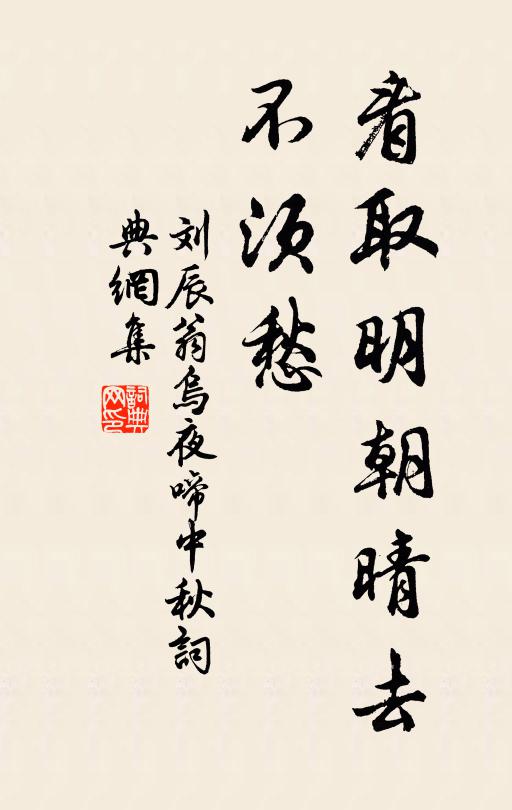 看取明朝晴去
不须愁
刘辰翁烏夜啼中秋詞
典網集
詞典网印